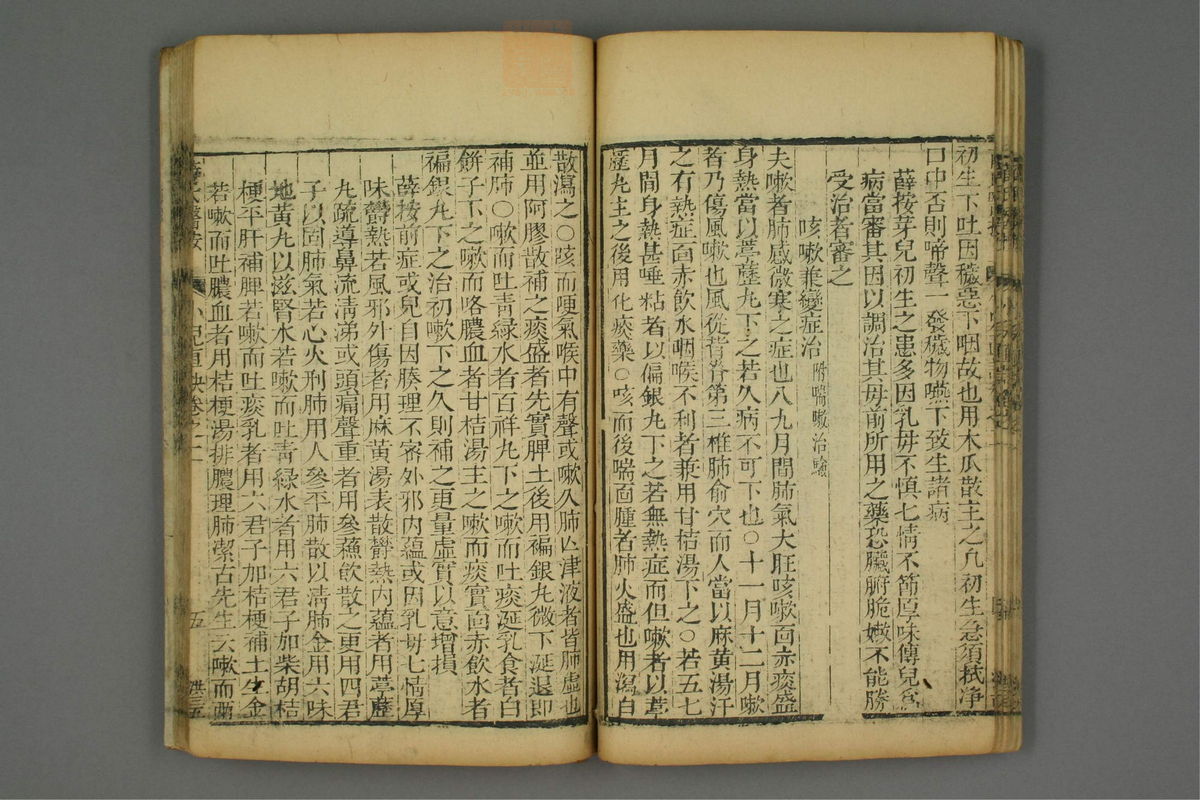 初生下吐因穢惡下咽故也用木瓜散主之凡初生急須拭净
口中否則啼聲一發穢物嚥下致生諸病
薛按芽兒初生之患多因乳母不慎七情不節厚味傳兒爲
病當審其因以調治其母前所用之藥恐臟腑脆嫩不能勝
受治者審之
咳嗽兼變症治 附喘嗽治驗
夫嗽者肺感微寒之症也八九月間肺氣大旺咳嗽面赤痰盛
身熱當以葶藶丸下之若久病不可下也〇十一月十二月嗽
者乃傷風嗽也風從背脊第三椎肺俞穴而入當以麻黄湯汗
之有熱症面赤飲水咽喉不利者兼用甘桔湯下之〇若五七
月間身熱甚唾粘者以偏銀丸下之若無熱症而但嗽者以葶
藶丸主之後用化痰藥〇咳而後喘面腫者肺火盛也用瀉白
散瀉之〇咳而哽氣喉中有聲或嗽久肺亡津液者皆肺虚也
並用阿膠散補之痰盛者先實脾土後用褊銀丸微下涎退即
補肺〇嗽而吐青緑水者百祥丸下之嗽而吐痰涎乳食者白
餅子下之嗽而咯膿血者甘桔湯主之嗽而痰實面赤飲水者
褊銀丸下之治初嗽下之久則補之更量虚實以意增損
薛按前症或兒自因腠理不密外邪内蘊或因乳母七情厚
味欝熱若風邪外傷者用麻黄湯表散欝熱内蘊者用葶藶
丸疏導鼻流清涕或頭痛聲重者用參蘇飲散之更用四君
子以固肺氣若心火刑肺用人參平肺散以清肺金用六味
地黄丸以滋腎水若嗽而吐青緑水者用六君子加柴胡桔
梗平肝補脾若嗽而吐痰乳者用六君子加桔梗補土生金
若嗽而吐膿血者用桔梗湯排膿理肺潔古先生云嗽而兩
薛氏醫按 小兒直訣卷之二 五